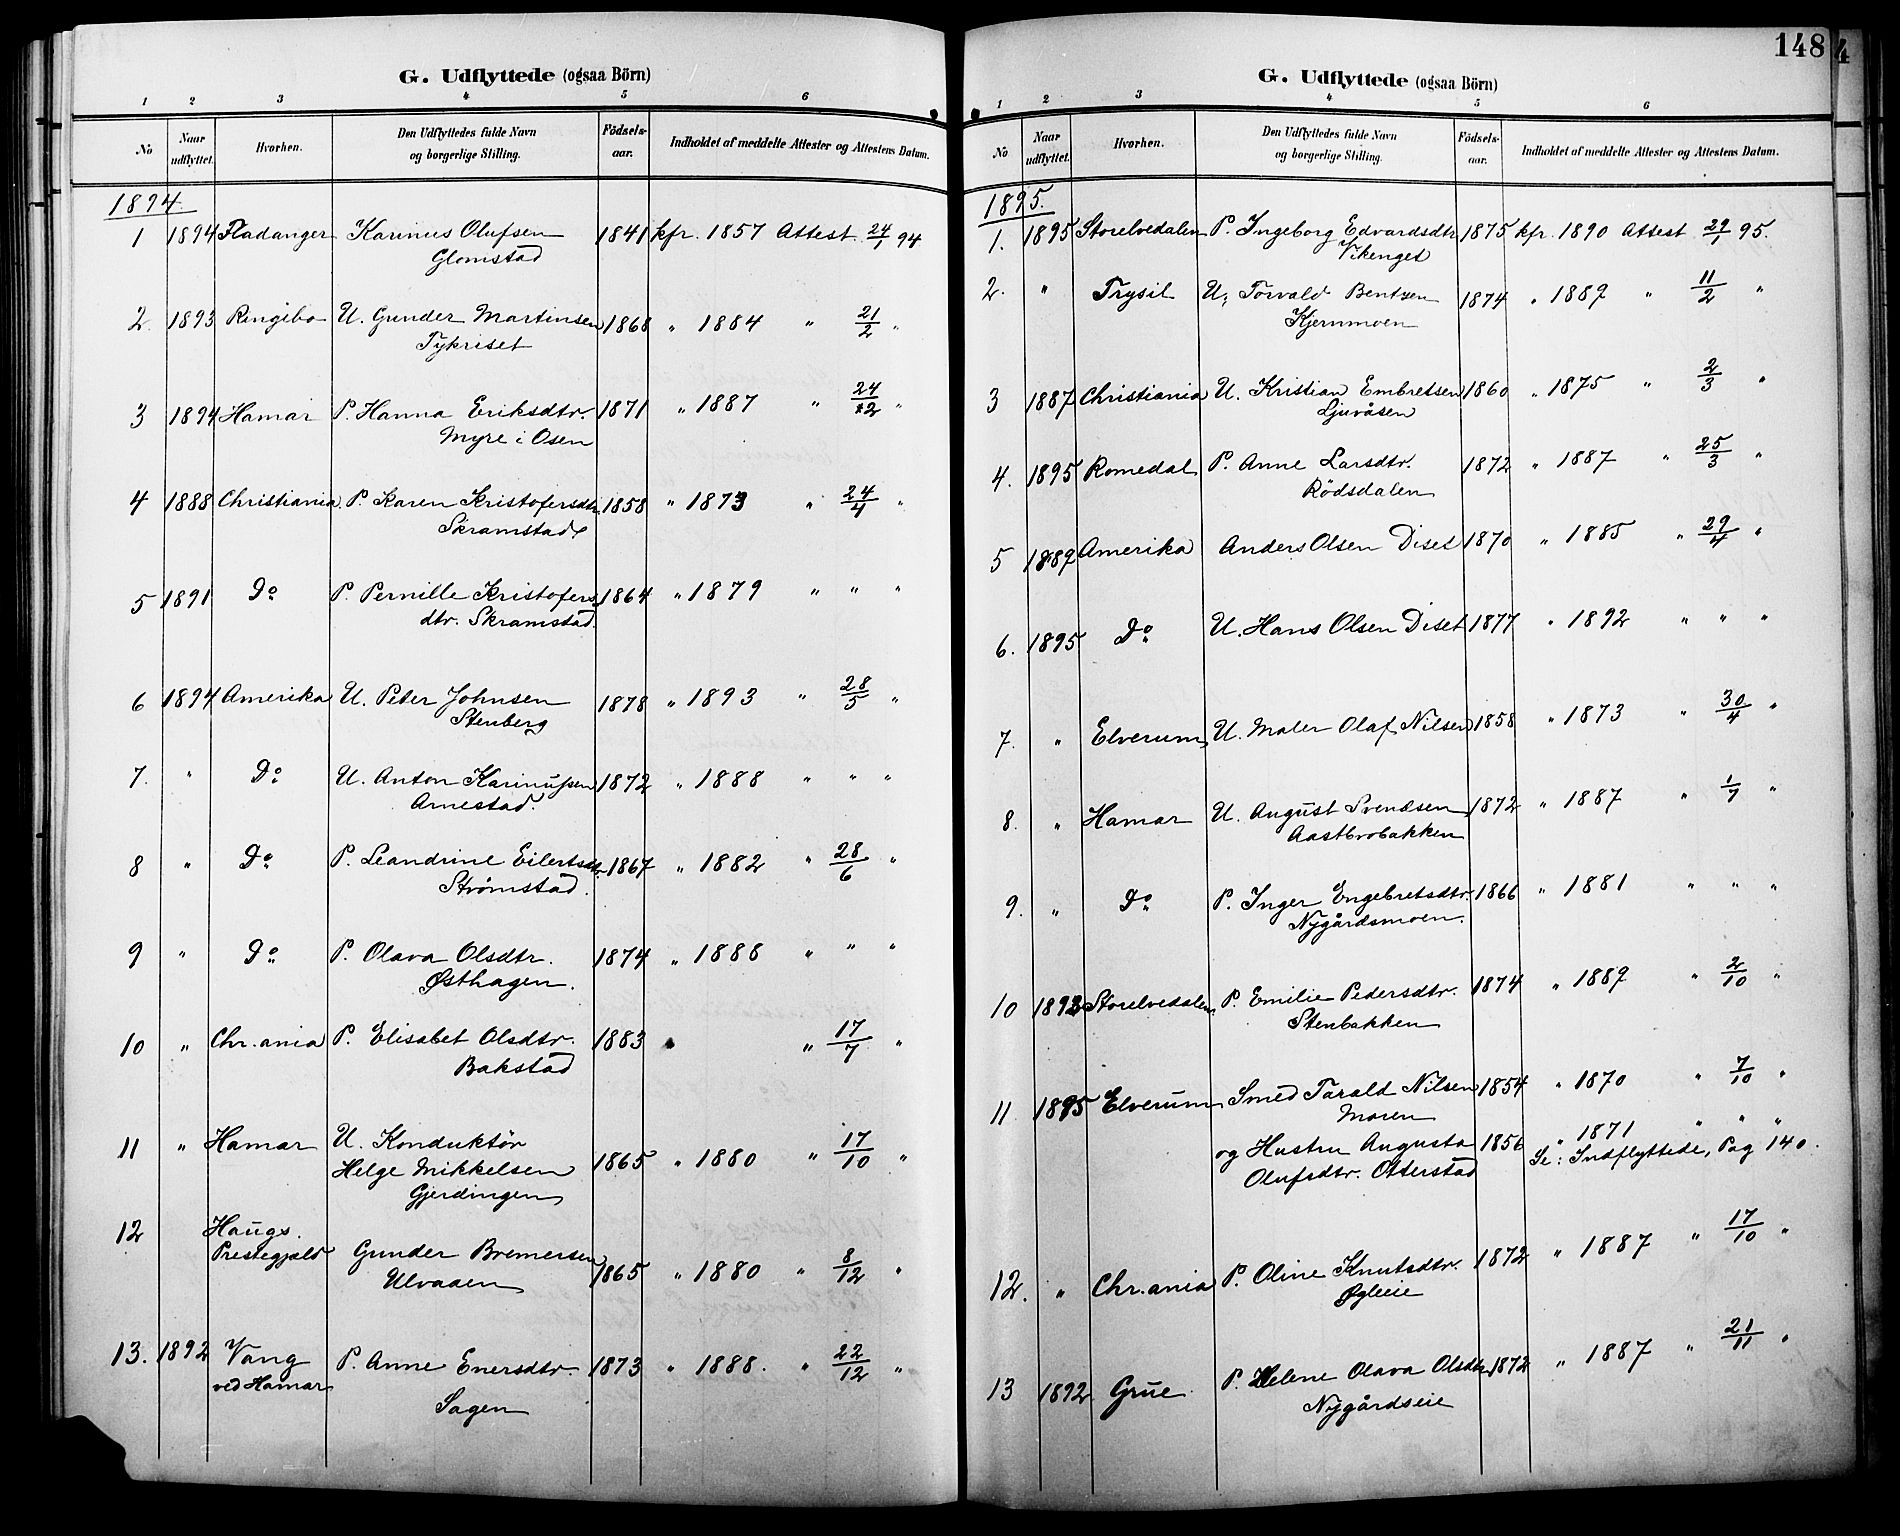 G. Udflyttede (ogsaa Börn)
1 2 3 4 5 6
No Naar udflyttet. Hvorhen. Den Udflyttedes fulde Navn og borgerlige Stilling. Födsels-aar. Indholdet af meddelte Attester og Attestens Datum.
1894
1 1894 Fladanger Karinus Olufsen 1841 kfr. 1857 Attest 24/1 94
Glomstad
2. 1893 Ringebo U. Gunder Martinsen 1868 " 1884 " 21/2 "
Tykriset
3 1894 Hamar P. Hanna Eriksdtr. 1871 " 1887 " 24/2 "
Myre i Osen
4 1888 Christiania P. Karen Kristofersdtr. 1858 " 1873 " 24/4 "
Skramstad
5 1891 Do P. Pernille Kristofers 1864 " 1879 " " "
dtr. Skramstad.
6 1894 Amerika U. Peter Johnsen 1878 " 1893 " 28/5 "
Stenberg
7. " Do U. Anton Karinussen 1872 " 1888 " " "
Arnestad.
8 " Do P. Leandrine Eilertsdtr. 1867 " 1882 " 28/6 "
Strömstad.
9 " Do P. Olava Olsdtr. 1874 " 1888 " " "
Østhagen.
10 " Chr.ania P. Elisabet Olsdtr. 1883 " 17/7 "
Bakstad
11 " Hamar U. Konduktör
Helge Mikkelsen 1865 " 1880 " 17/10 "
Gjerdingen
12 Haugs.
Prestegjæld Gunder Bremersen 1865 " 1880 " 8/12 "
Ulvaaen
13. 1892 Vang P. Anne Enersdtr. 1873 " 1888. " 22/12 "
ved Hamar
Sagen
148
4
G. Udflyttede (ogsaa Börn)
1 2 3 4 5 6
No Naar udflyttet. Hvorhen. Den Udflyttedes fulde Navn og borgerlige Stilling. Födsels-aar. Indholdet af meddelte Attester og Attestens Datum.
1895.
1. 1895 Storelvedalen P. Ingeborg Edvardsdtr 1875 kfr. 1890 Attest 29/1 95.
Vikenget
2. " Trysil U. Torvald Bentzen 1874 " 1889 " 11/2 "
Kjernmoen
3 1887 Christiania U. Kristian Embretsen 1860 " 1875 " 2/3 "
Ljuvåsen
4. 1895 Romedal P. Anne Larsdtr. 1872 " 1887 " 25/3 "
Rödsdalen
5 1889 Amerika Anders Olsen Diset 1870 " 1885 " 29/4 "
6. 1895 Do U. Hans Olsen Diset 1877 " 1892 " " "
7. " Elverum U. Maler Olaf Nilsen 1858 " 1873 " 30/4 "
8. " Hamar U. August Svendsen 1872 " 1887 " 1/7 "
Aastbrobakken
9. " Do P. Inger Engebretsdtr. 1866 " 1881 " " "
Nygårdsmoen.
10 1893 Storelvedalen P. Emilie Pedersdtr. 1874 " 1889 " 2/10 "
Stenbakken
11 1895 Elverum Smed Tarald Nilsen 1854 " 1870 " 7/10 "
Moren
og Hustru Augusta 1856 " 1871 " " "
Olufsdtr. Otterstad Se: Indflyttede, Pag 140.
12. " Chr.ania P. Oline Knutsdtr. 1872 " 1887 " 17/10 "
Øgleie
13 1892 Grue P. Helene Olava Olsdtr 1872 " 1887 " 21/11 "
Nygårdseie